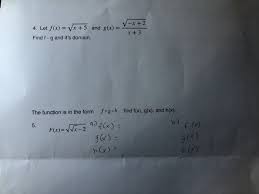 4. Let f(x) = √(x+5) and g(x) = √(-x+2)/(x+3)
Find f - g and it's domain.
The function is in the form f∘g∘h find f(x), g(x), and h(x).
5. F(x) = √(√x - 2) a.) f(x) = b.) f(x)
g(x) = g(x)
h(x) = h(x)